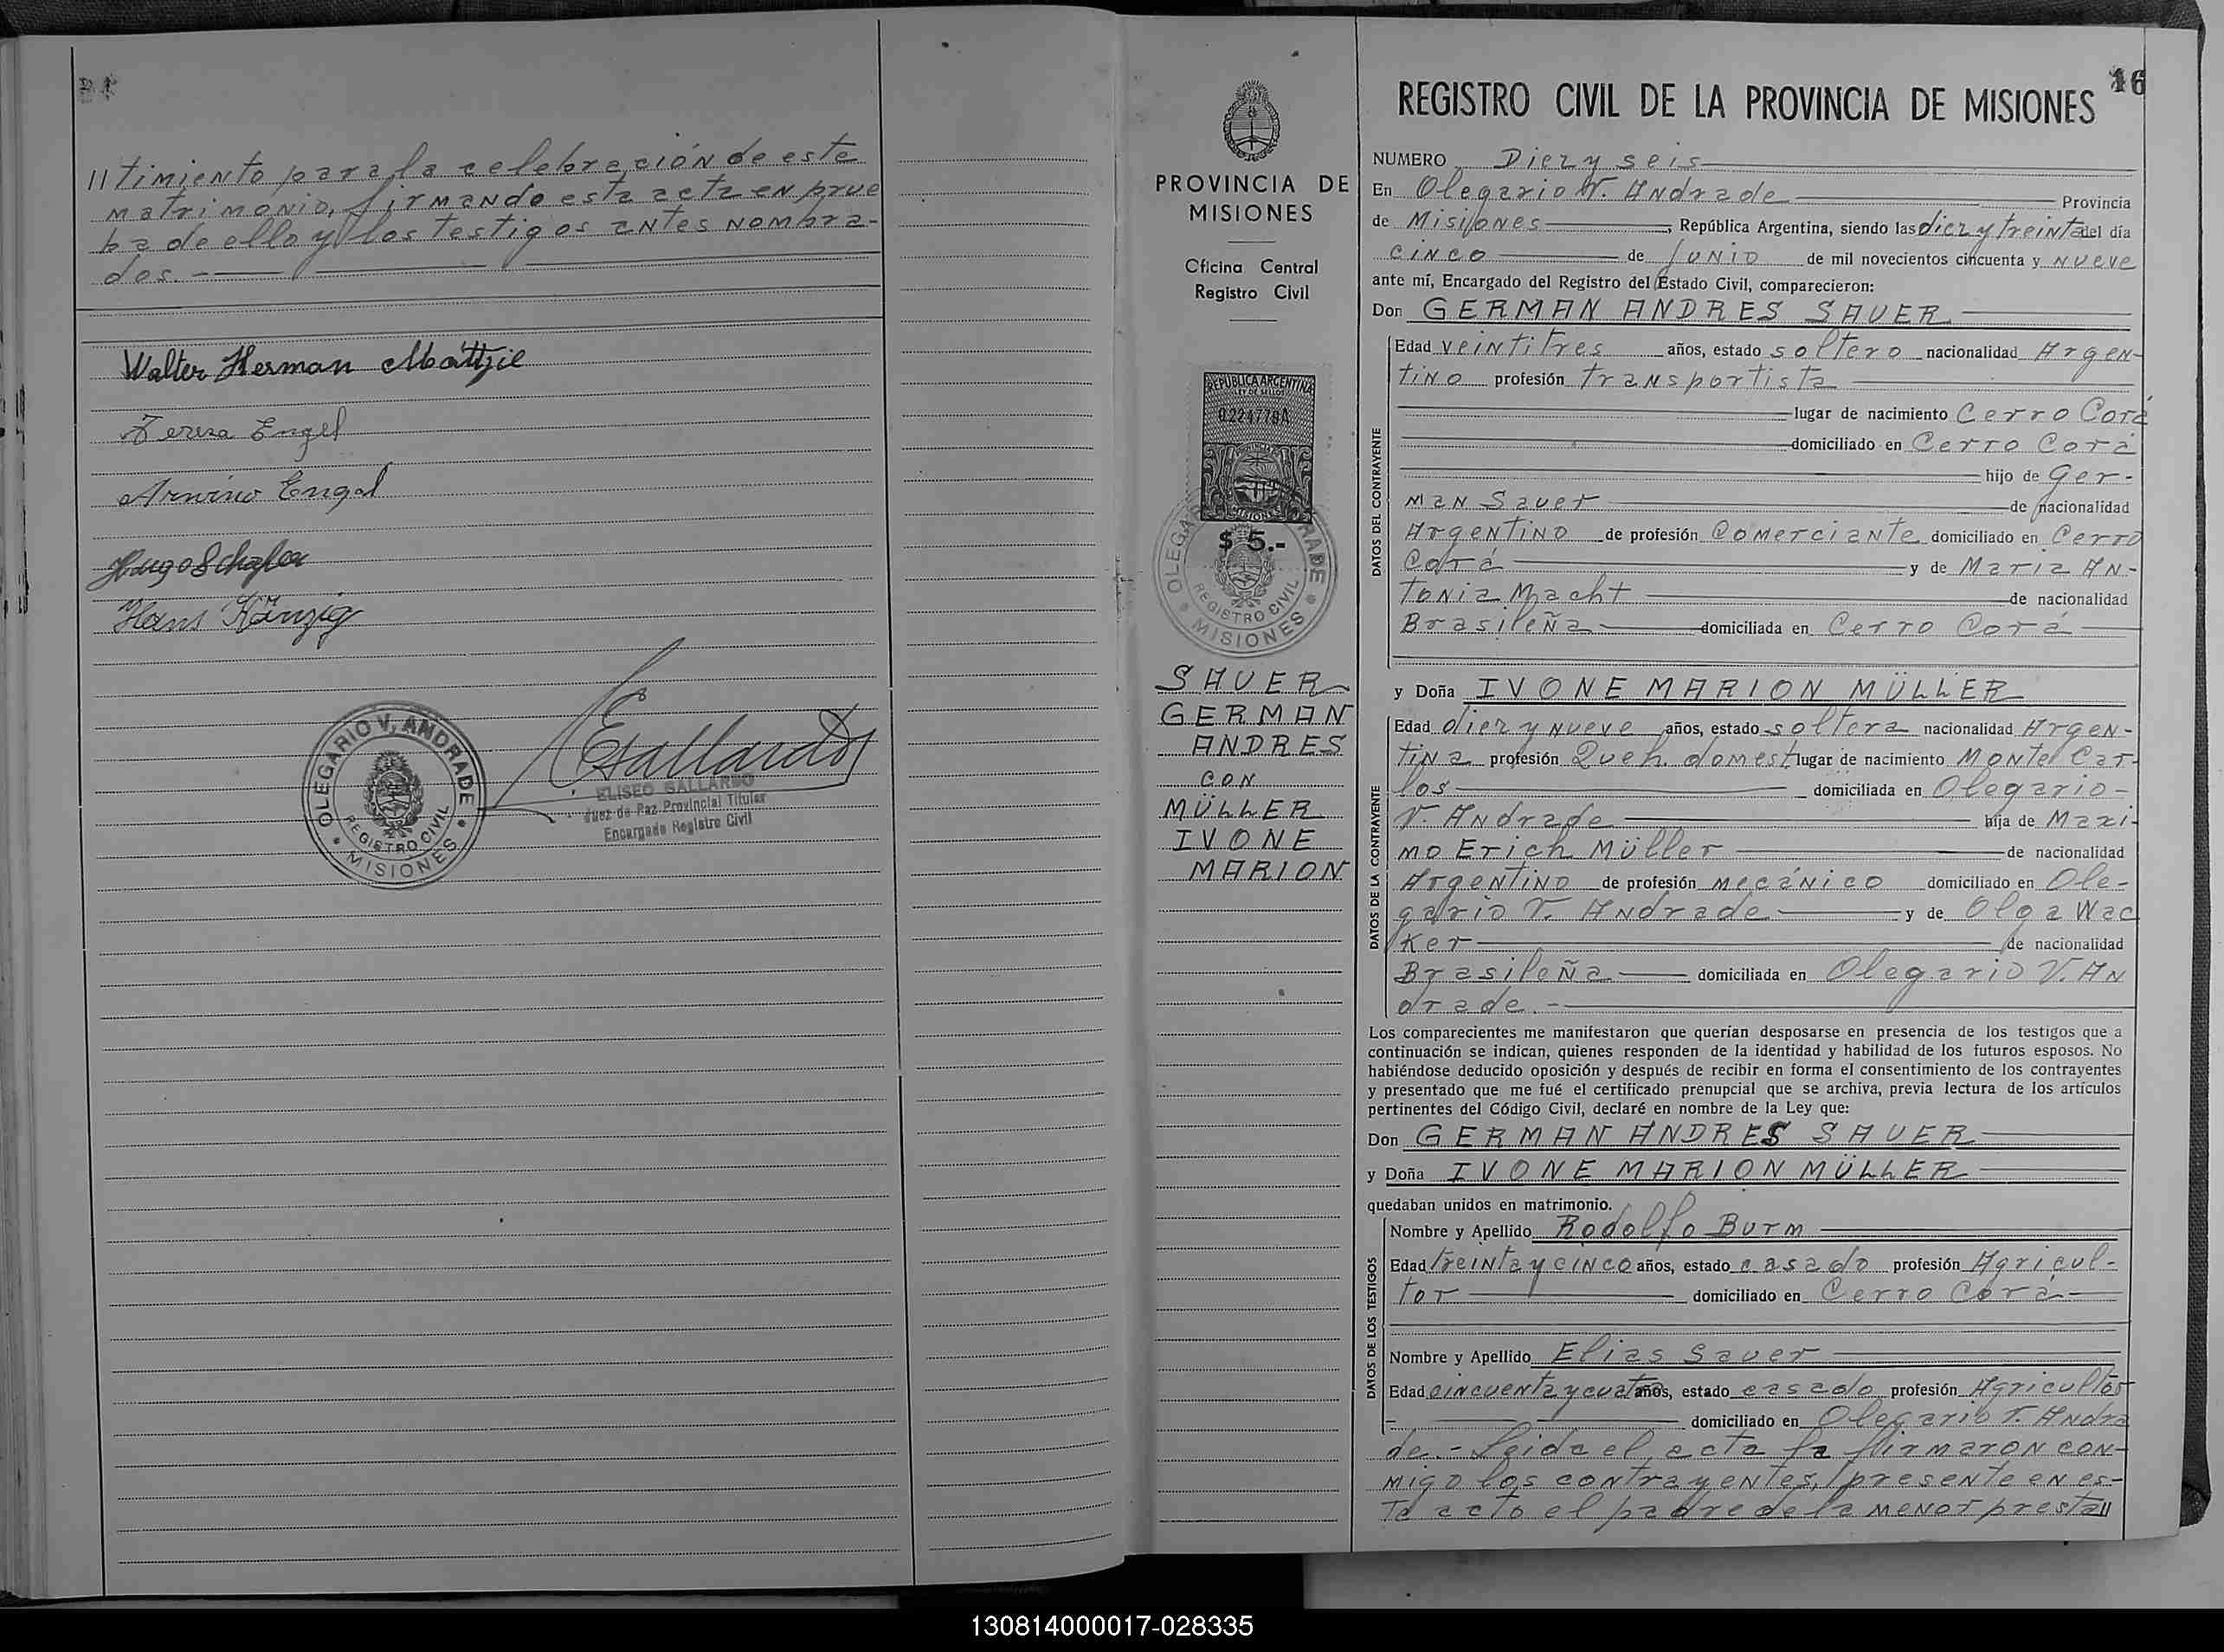 // timiento para la celebración de este
matrimonio, firmando esta acta en prue
ba de ello y los testigos antes nombra-
dos.-
Walter Herman
Teresa Engel
Arnino Engel
Hugo Schafer
Hans Känzig
OLEGARIO V. ANDRADE
REGISTRO CIVIL
MISIONES
EGallardo
ELISEO GALLARDO
Juez de Paz Provincial Titular
Encargado Registro Civil
PROVINCIA DE
MISIONES
Oficina Central
Registro Civil
REPUBLICA ARGENTINA
LEY DE SELLOS
0224778A
MISIONES
$ 5.-
REGISTRO CIVIL
MISIONES
SAUER
GERMAN
ANDRES
CON
MÜLLER
IVONE
MARION
16
REGISTRO CIVIL DE LA PROVINCIA DE MISIONES
NUMERO Diez y seis
En Olegario V. Andrade Provincia
de Misiones, República Argentina, siendo las diez y treinta del día
cinco de Junio de mil novecientos cincuenta y nueve
ante mí, Encargado del Registro del Estado Civil, comparecieron:
Don GERMAN ANDRES SAUER
DATOS DEL CONTRAYENTE
Edad veintitres años, estado soltero nacionalidad Argen-
tino profesión transportista
lugar de nacimiento Cerro Corá
domiciliado en Cerro Corá
hijo de Ger-
man Sauer de nacionalidad
Argentino de profesión Comerciante domiciliado en Cerro
Corá y de Maria An-
tonia Macht de nacionalidad
Brasileña domiciliada en Cerro Corá
y Doña IVONE MARION MÜLLER
DATOS DE LA CONTRAYENTE
Edad diez y nueve años, estado soltera nacionalidad Argen-
tina profesión Queh. domest lugar de nacimiento Monte Car-
los domiciliada en Olegario
V. Andrade hija de Maxi-
mo Erich Müller de nacionalidad
Argentino de profesión mecánico domiciliado en Ole-
gario V. Andrade y de Olga Wac
ker de nacionalidad
Brasileña domiciliada en Olegario V. An
drade.-
Los comparecientes me manifestaron que querían desposarse en presencia de los testigos que a
continuación se indican, quienes responden de la identidad y habilidad de los futuros esposos. No
habiéndose deducido oposición y después de recibir en forma el consentimiento de los contrayentes
y presentado que me fué el certificado prenupcial que se archiva, previa lectura de los artículos
pertinentes del Código Civil, declaré en nombre de la Ley que:
Don GERMAN ANDRES SAUER
y Doña IVONE MARION MÜLLER
quedaban unidos en matrimonio.
DATOS DE LOS TESTIGOS
Nombre y Apellido Rodolfo Burm
Edad treinta y cinco años, estado casado profesión Agricul-
tor domiciliado en Cerro Corá
Nombre y Apellido Elias Sauer
Edad cincuenta y cuatro años, estado casado profesión Agricultor
domiciliado en Olegario V. Andra
de.- Leida el acta la firmaron con-
migo los contrayentes, presente en es-
te acto el padre de la menor presta//
130814000017-028335